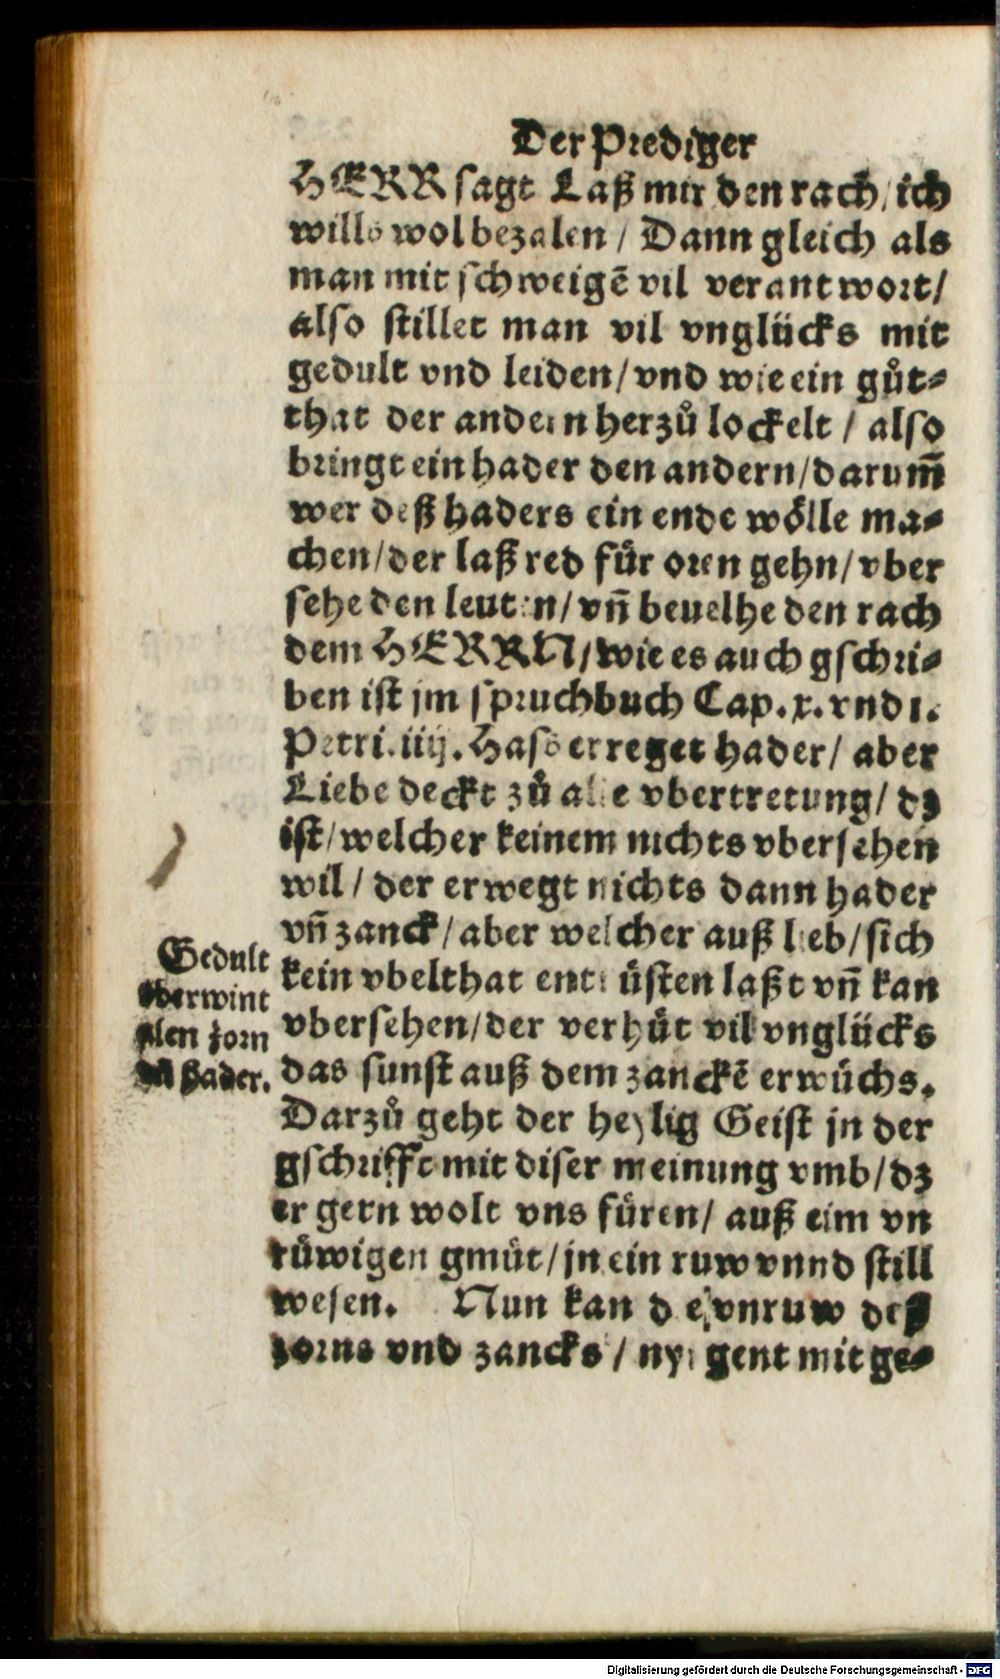 Der Prediger
HERR sagt Laß mir den rach / ich
wills wol bezalen / Dann gleich als
man mit schweigē vil verantwort /
also stillet man vil vnglücks mit
gedult vnd leiden / vnd wie ein gůt-
that der andern herzů lockelt / also
bringt ein hader den andern / darum̄
wer deß haders ein ende wölle ma-
chen / der laß red für oren gehn / vber
sehe den leuten / vn̄ beuelhe den rach
dem HERRN / wie es auch gschri-
ben ist jm spruchbuch Cap. x. vnd 1.
Petri. iiij. Hass erreget hader / aber
Liebe deckt zů alle vbertretung / dz
ist / welcher keinem nichts vbersehen
wil / der erwegt nichts dann hader
vn̄ zanck / aber welcher auß lieb / sich
kein vbelthat entrüsten laßt vn̄ kan
vbersehen / der verhüt vil vnglücks
das sunst auß dem zanckē erwüchs.
Darzů geht der heylig Geist jn der
gschrifft mit diser meinung vmb / dz
er gern wolt vns füren / auß eim vn
rüwigen gmüt / jn ein ruw vnnd still
wesen. Nun kan die vnruw deß
zorns vnd zancks / nyrgent mit ge-
Gedult
vberwint
alen zorn
vn̄ hader.
Digitalisierung gefördert durch die Deutsche Forschungsgemeinschaft - DFG